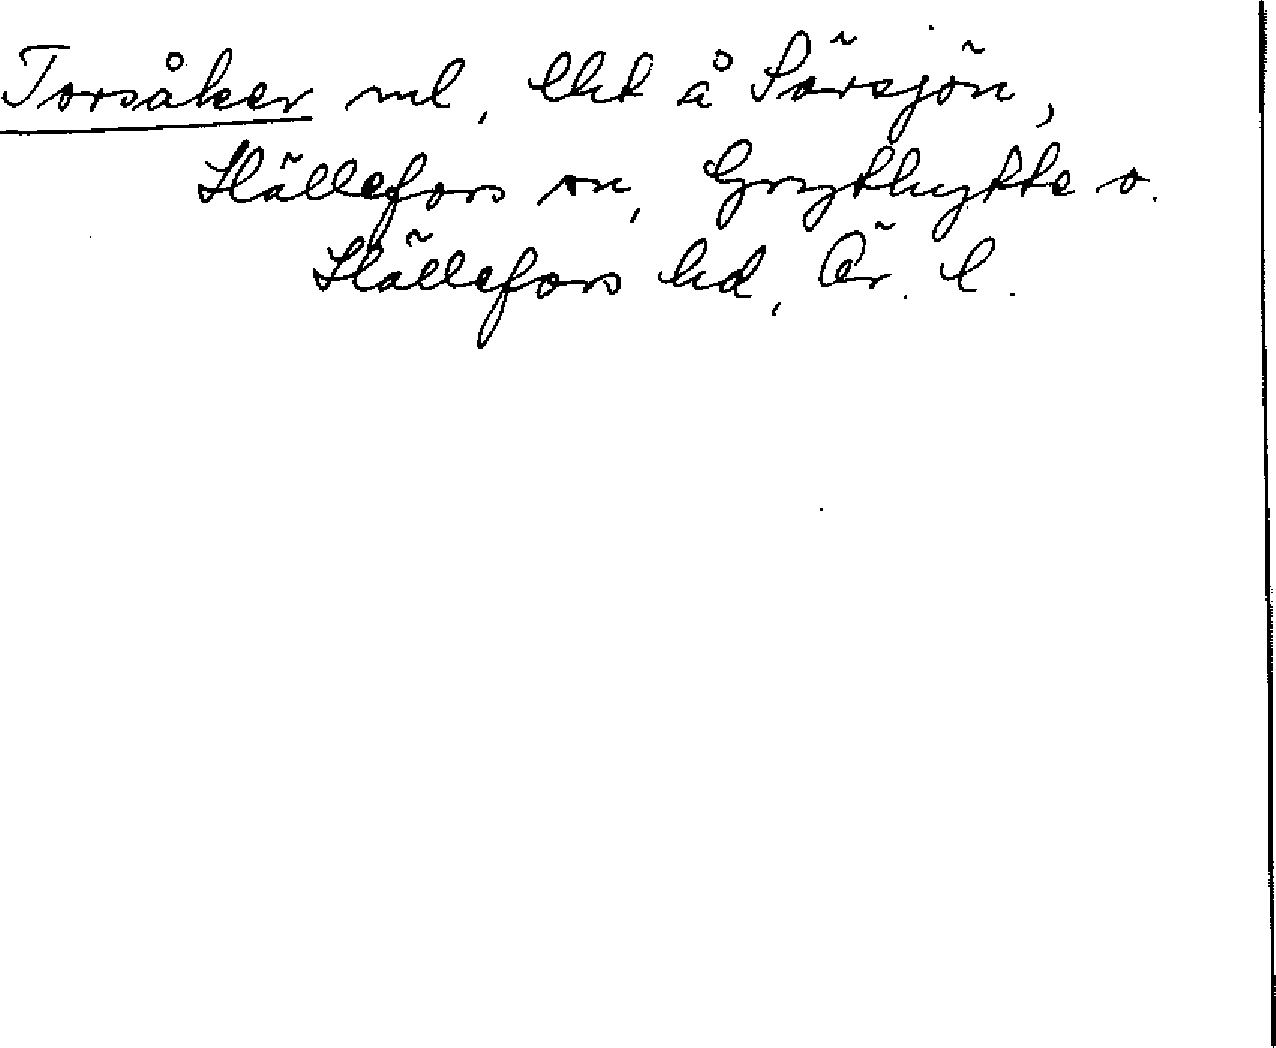 Torsåker ml, Ekt å Sörsjön,
Hällefors sn, Grythytte o.
Hällefors hd, Ör. l.